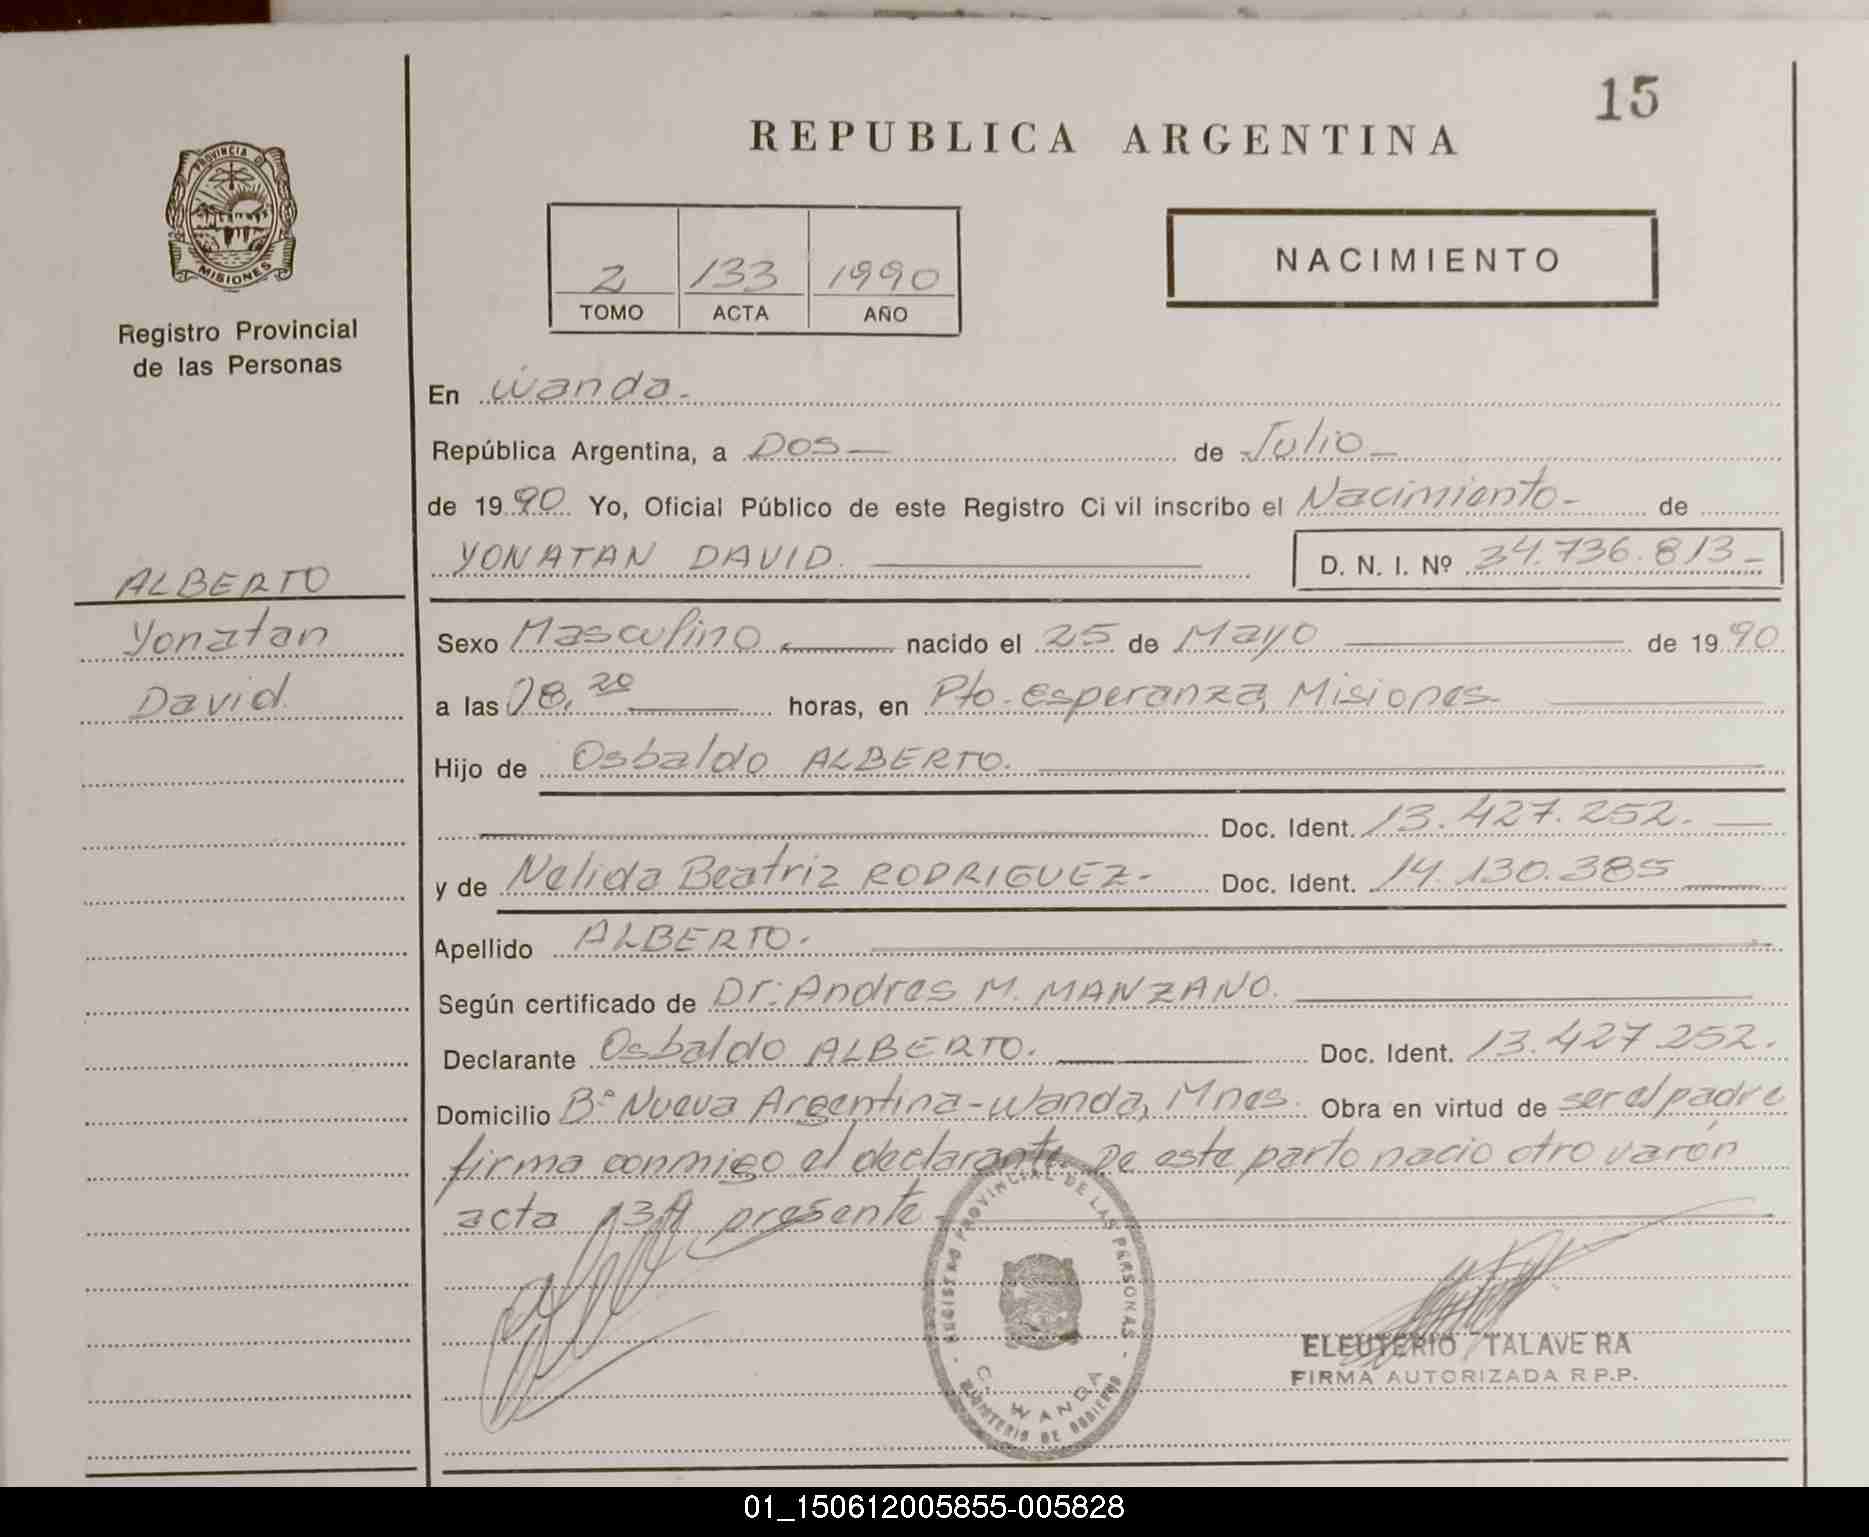 15
REPUBLICA ARGENTINA
PROVINCIA D
MISIONES
Registro Provincial
de las Personas
2 133 1990
TOMO ACTA AÑO
NACIMIENTO
En Wanda.-
República Argentina, a Dos — de Julio —
de 1990 Yo, Oficial Público de este Registro Civil inscribo el Nacimiento - de
YONATAN DAVID. D. N. I. Nº 34.736.813 -
ALBERTO
Yonatan
David.
Sexo Masculino nacido el 25 de Mayo de 1990
a las 08,20 horas, en Pto. Esperanza, Misiones.
Hijo de Osbaldo ALBERTO.
Doc. Ident. 13.427.252.
y de Nelida Beatriz RODRIGUEZ.- Doc. Ident. 14.130.385
Apellido ALBERTO.
Según certificado de Dr. Andres M. MANZANO.
Declarante Osbaldo ALBERTO. Doc. Ident. 13.427.252.
Domicilio Bº Nueva Argentina-Wanda, Mnes. Obra en virtud de ser el padre
firma conmigo el declarante. De este parto nacio otro varón
acta presente
REGISTRO PROVINCIAL DE LAS PERSONAS
WANDA
MINISTERIO DE GOBIERNO
ELEUTERIO TALAVERA
FIRMA AUTORIZADA R.P.P.
01_150612005855-005828